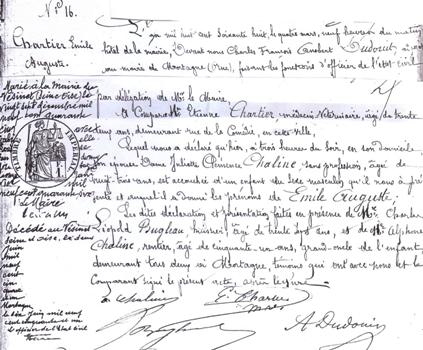 N° 16.
Chartier Emile
Auguste.
L'an mil huit cent soixante huit, le quatre mars, neuf heures du matin
hôtel de la mairie, Devant nous Charles François Dudouit,
maire de Mortagne (Orne), faisant les fonctions d'officier de l'état civil
par délégation de Mr le Maire.
A Comparu Mr Etienne Chartier, médecin Vétérinaire, âgé de trente
ans, demeurant rue de la Comédie, en cette Ville,
Lequel nous a déclaré qu'hier, à trois heures du soir, en son domicile
son épouse Dame Juliette Clémence Chaline sans profession, âgée de
vingt-trois ans, est accouchée d'un enfant du sexe masculin qu'il nous a pré-
senté et auquel il a donné les prénoms de Emile Auguste;
Les dites déclaration et présentation faites en présence de Mr Charles
Léopold Bugleau, huissier, âgé de trente ans, et de Mr Alphonse
Chaline, rentier, âgé de cinquante-un ans, Grand-oncle de l'enfant,
demeurant tous deux en Mortagne, témoins qui ont avec nous et le
Comparant signé le présent acte, après lecture
Marié à la Mairie du
Vésinet (Seine et Oise) le
décembre mil
neuf cent quarante cinq
Le Maire
Décédé au Vésinet
Seine et Oise, le deux
juin
mil
neuf
cent
Mortagne
le juin mil neuf
cent cinquante et un
officier de l'état civil
E. Chartier
A Dudouit